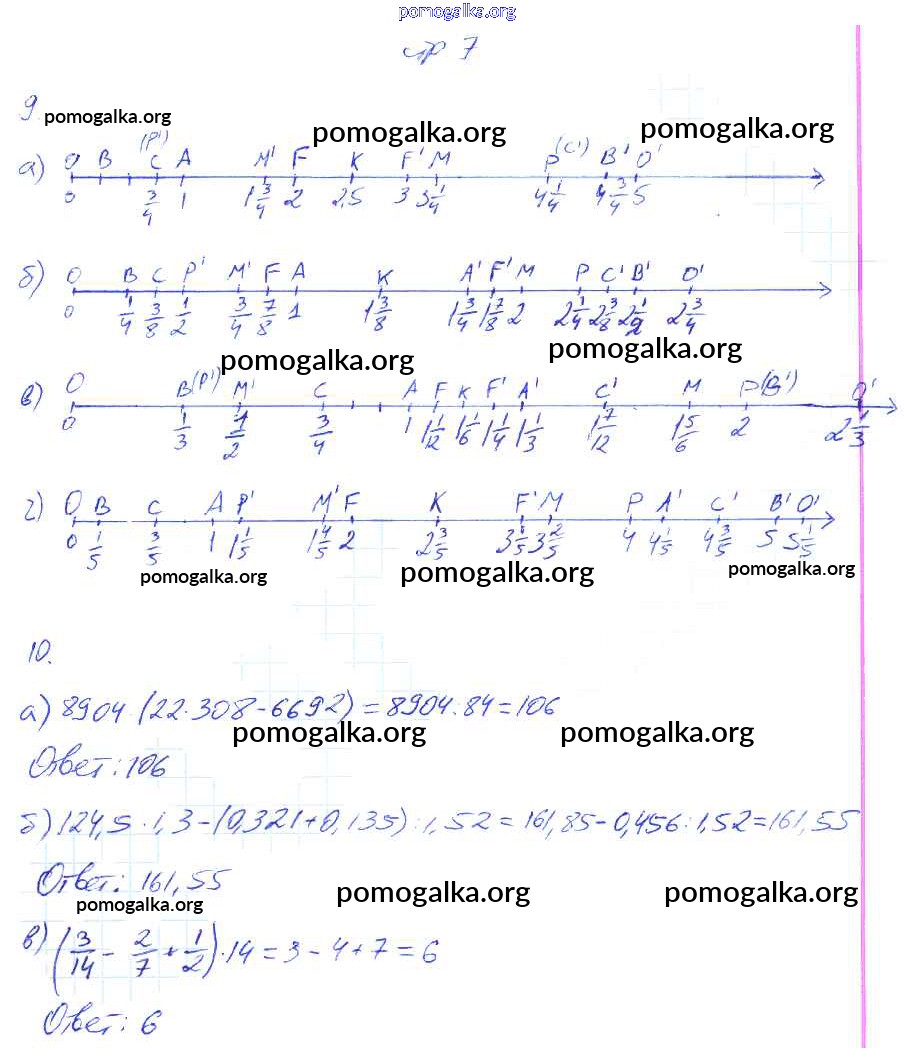 pomogalka.org
стр 7
9
pomogalka.org
pomogalka.org
pomogalka.org
(P')
(C')
а) O B C A M' F K F' M P B' O'
0 3/4 1 1 3/4 2 2,5 3 3 1/4 4 1/4 4 3/4 5
б) O B C P' M' F A K A' F' M P C' B' O'
0 1/4 3/8 1/2 3/4 7/8 1 1 3/8 1 3/4 1 7/8 2 2 1/4 2 3/8 2 1/2 2 3/4
pomogalka.org
pomogalka.org
в) O B(P') M' C A F K F' A' C' M P(B') O'
0 1/3 1/2 3/4 1 1 1/12 1 1/6 1 1/4 1 1/3 1 7/12 1 5/6 2 2 1/3
г) O B C A P' M' F K F' M P A' C' B' O'
0 1/5 3/5 1 1 1/5 1 4/5 2 2 3/5 3 1/5 3 2/5 4 4 1/5 4 3/5 5 5 1/5
pomogalka.org
pomogalka.org
pomogalka.org
10.
а) 8904:(22·308-6692)=8904:84=106
pomogalka.org
pomogalka.org
Ответ: 106
б) 124,5·1,3-(0,321+0,135):1,52=161,85-0,456:1,52=161,55
Ответ: 161,55
pomogalka.org
pomogalka.org
pomogalka.org
в) (3/14 - 2/7 + 1/2)·14=3-4+7=6
Ответ: 6